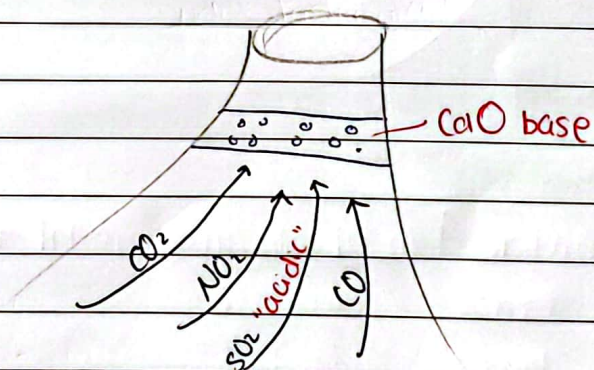 CaO base
CO₂
NO₂
SO₂ "acidic"
CO